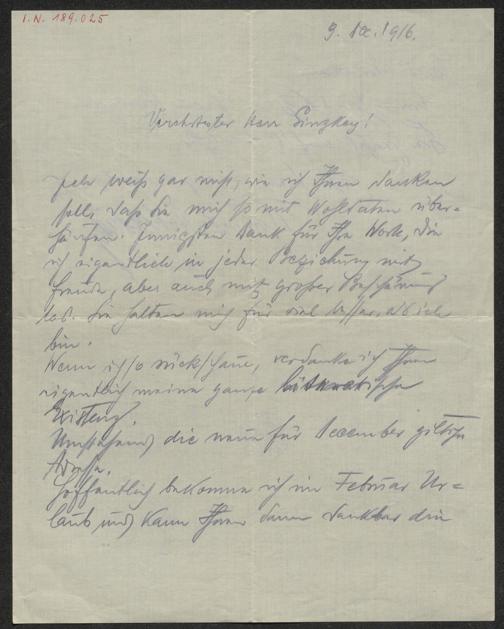 I.N. 189.025
9. Dez. 1916.
Verehrtester Herr Ginzkey!
Ich weiß gar nicht, wie ich Ihnen danken
soll, daß Sie mich so mit Wohltaten über-
häufen. Innigsten Dank für Ihre Worte, die
ich eigentlich in jeder Beziehung mit
Freude, aber auch mit großer Beschämung
las. Sie halten mich für viel besser, als ich
bin.
Wenn ich so rückschaue, verdanke ich Ihnen
eigentlich meine ganze literarische
Existenz.
Umstehend die neue für Dezember giltige
Adresse.
Hoffentlich bekomme ich im Februar Ur-
laub und kann Ihnen dann dankbar die